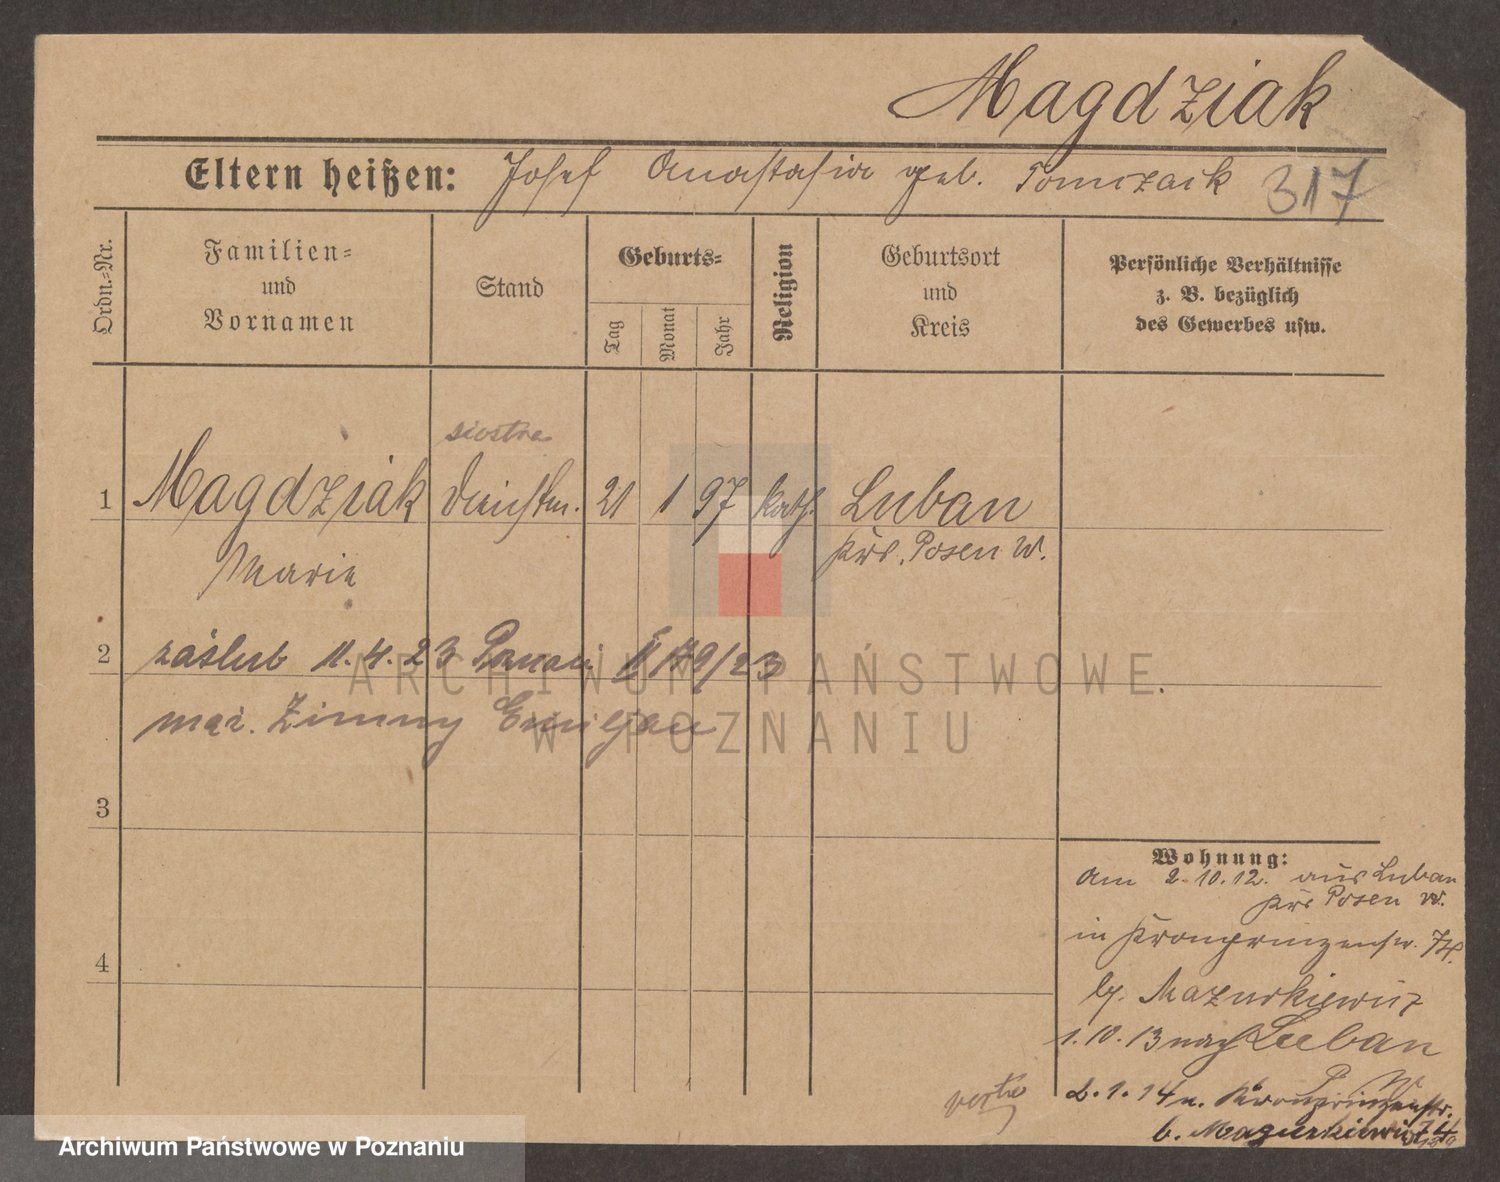 Magdziak
Eltern heißen: Josef Anastasia geb. Tomczack 317
Ordn.=Nr.
Familien=
und
Vornamen
Stand
Geburts=
Tag
Monat
Jahr
Religion
Geburtsort
und
Kreis
Persönliche Verhältnisse
z. B. bezüglich
des Gewerbes usw.
siostra
1 Magdziak Dienstm. 21 1 97 kath. Luban
Marie Krs. Posen W.
2 zaślub 11.4.23 Poznań
ARCHIWUM PAŃSTWOWE
W POZNANIU
mąż. Zimny Emiljan
3
4
Wohnung:
Am 2.10.12. aus Luban
Krs Posen W.
in Kronprinzenstr. 74.
b. Mazurkiewicz
1.10.13 nach Luban
P. W
2.1.14 n. Kronprinzenstr.
b. Mazurkiewicz
Archiwum Państwowe w Poznaniu